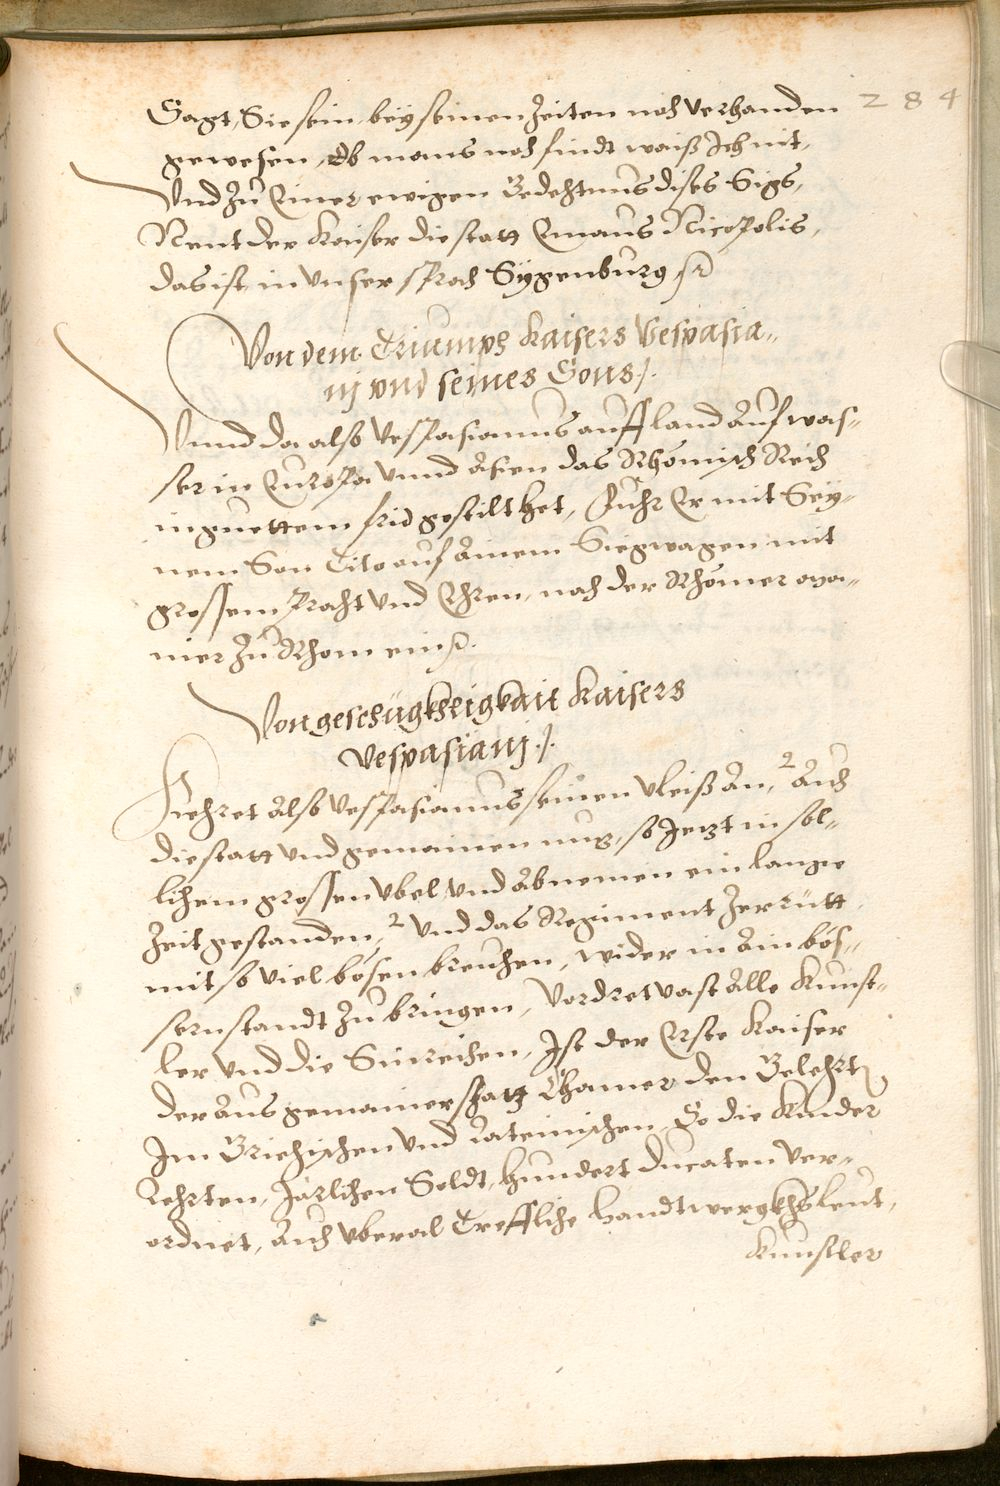 284
Sagt, Sie sein bey seinen Zeiten noch verhanden
gewesen, Ob mans noch findt waiß Ich nit,
Vnd zu Einer ewigen Gedechtnus dises Sigs,
Nent der Kaiser die statt Emaus Nicopolis,
das ist in vnser sprach Sygenburg
Von dem Triumph Kaisers Vespasia-
nj vnd seines Sons ./.
Vnnd da also Vespasianus auff land Auf was-
ser in Europa vnnd Asien das Rhömisch Reich
in guettem frid gestilt het, Fuhr Er mit Sey-
nem Son Tito auf Ainem Siegwagen mit
grossem Pracht vnd Ehren, nach der Rhömer ma-
nier zu Rhom ein
Von geschügkheigkait Kaisers
Vespasianj ./.
Kehret Also Vespasianus seinen vleiß An, Auch
die statt vnd gemainen nuz, so Jezt in sol-
lichem grossen vbel vnd Abnemen ein lange
Zeit gestanden, vnd das Regiment Zerrütt
mit so viel bösen breuchen, wider in Ain bös-
sern standt zu bringen, Vordret vast Alle Kunst-
ler vnd die Sinreichen, Ist der Erste Kaiser
der Aus gemainer schatz Chamer den Gelehrtn
Im Griechischen vnd Lateinischen So die Kinder
Lehrten, Järlichen Soldt, hundert Ducaten ver-
ordnet, Auch vberal Treffliche handtwergkhsleut,
Kunstler